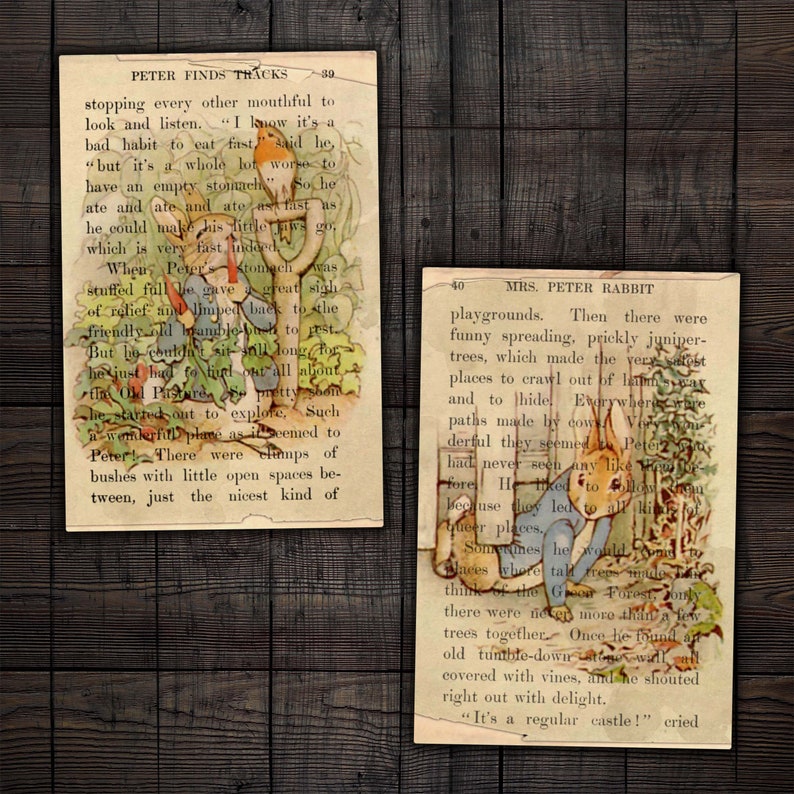 PETER FINDS TRACKS 39
stopping every other mouthful to
look and listen. "I know it's a
bad habit to eat fast," said he,
"but it's a whole lot worse to
have an empty stomach." So he
ate and ate and ate as fast as
he could make his little jaws go,
which is very fast indeed.
When Peter's stomach was
stuffed full he gave a great sigh
of relief and limped back to the
friendly old bramble-bush to rest.
But he couldn't sit still long, for
he just had to find out all about
the Old Pasture. So pretty soon
he started out to explore. Such
a wonderful place as it seemed to
Peter! There were clumps of
bushes with little open spaces be-
tween, just the nicest kind of
40 MRS. PETER RABBIT
playgrounds. Then there were
funny spreading, prickly juniper-
trees, which made the very safest
places to crawl out of harm's way
and to hide. Everywhere were
paths made by cows. Very won-
derful they seemed to Peter, who
had never seen any like them be-
fore. He liked to follow them
because they led to all kinds of
queer places.
Sometimes he would come to
places where tall trees made him
think of the Green Forest, only
there were never more than a few
trees together. Once he found an
old tumble-down stone wall all
covered with vines, and he shouted
right out with delight.
"It's a regular castle!" cried